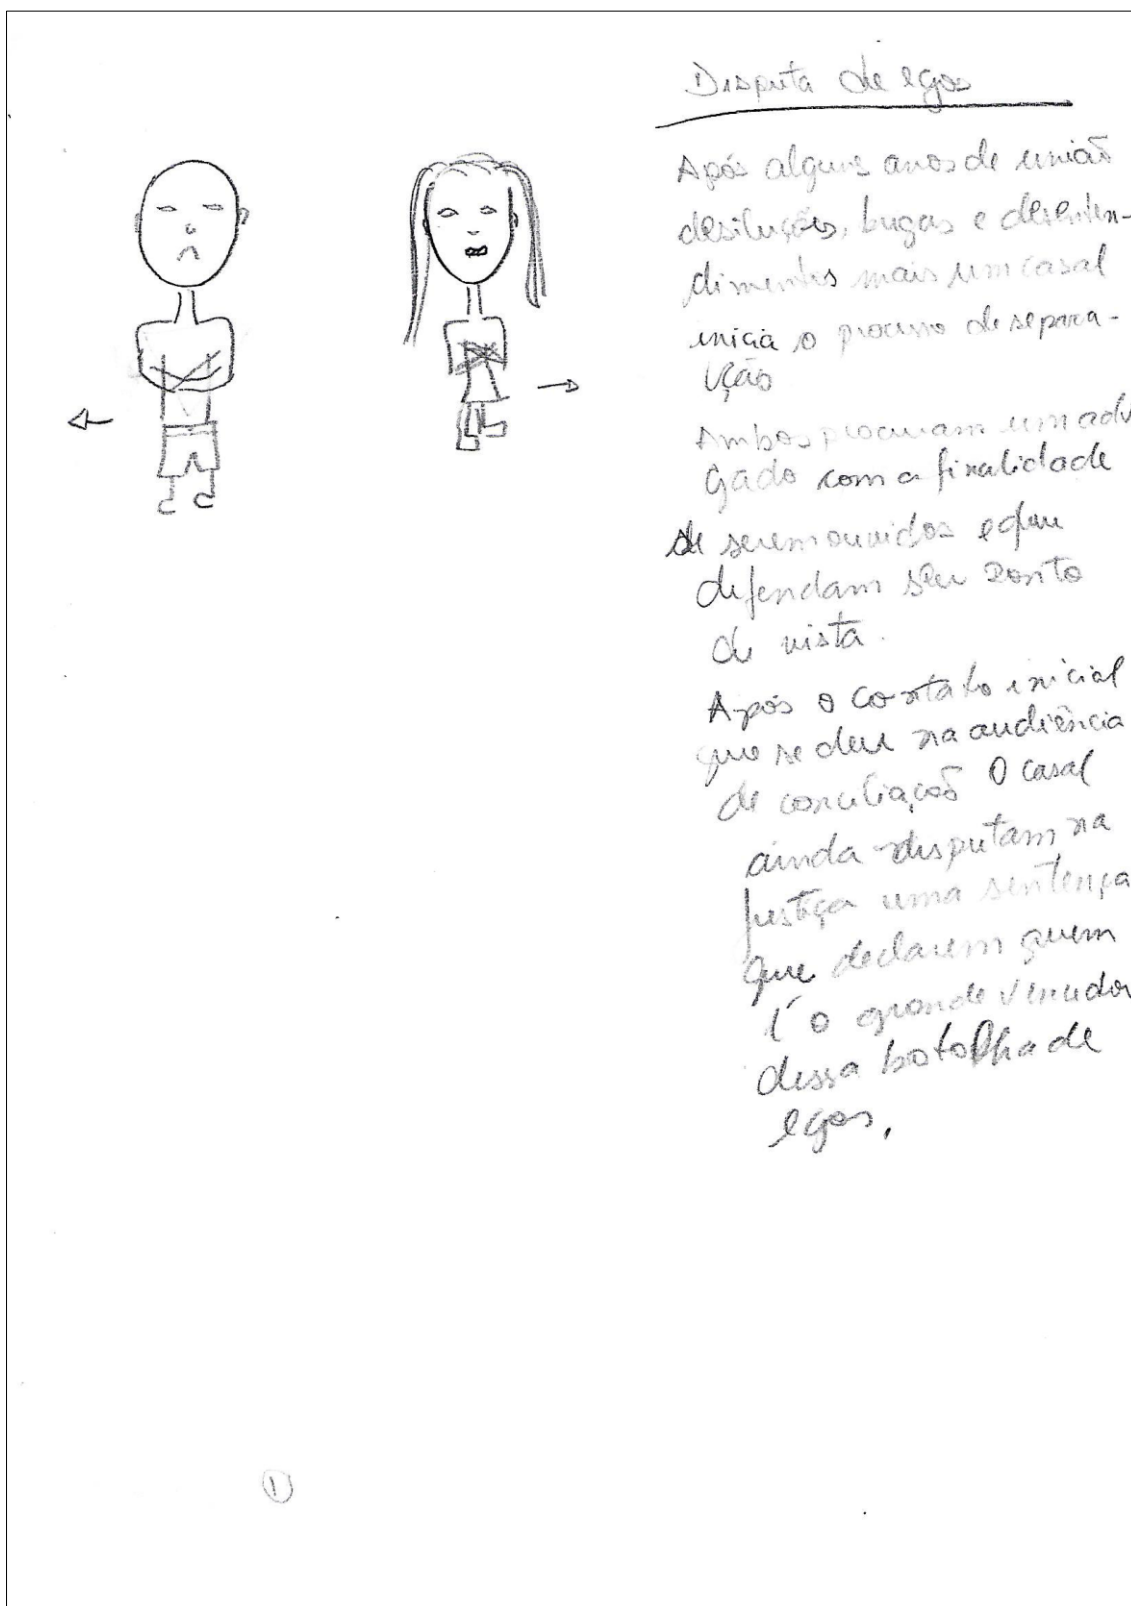 Disputa de egos
Após alguns anos de união
desiluções, brigas e desenten-
dimentos mais um casal
inicia o processo de separa-
ção
Ambos procuram um adv
gado com a finalidade
de serem ouvidos e que
defendam seu ponto
de vista.
Após o contato inicial
que se deu na audiência
de conciliação O casal
ainda disputam na
justiça uma sentença
que declarem quem
é o grande vencedor
dessa batalha de
egos.
1